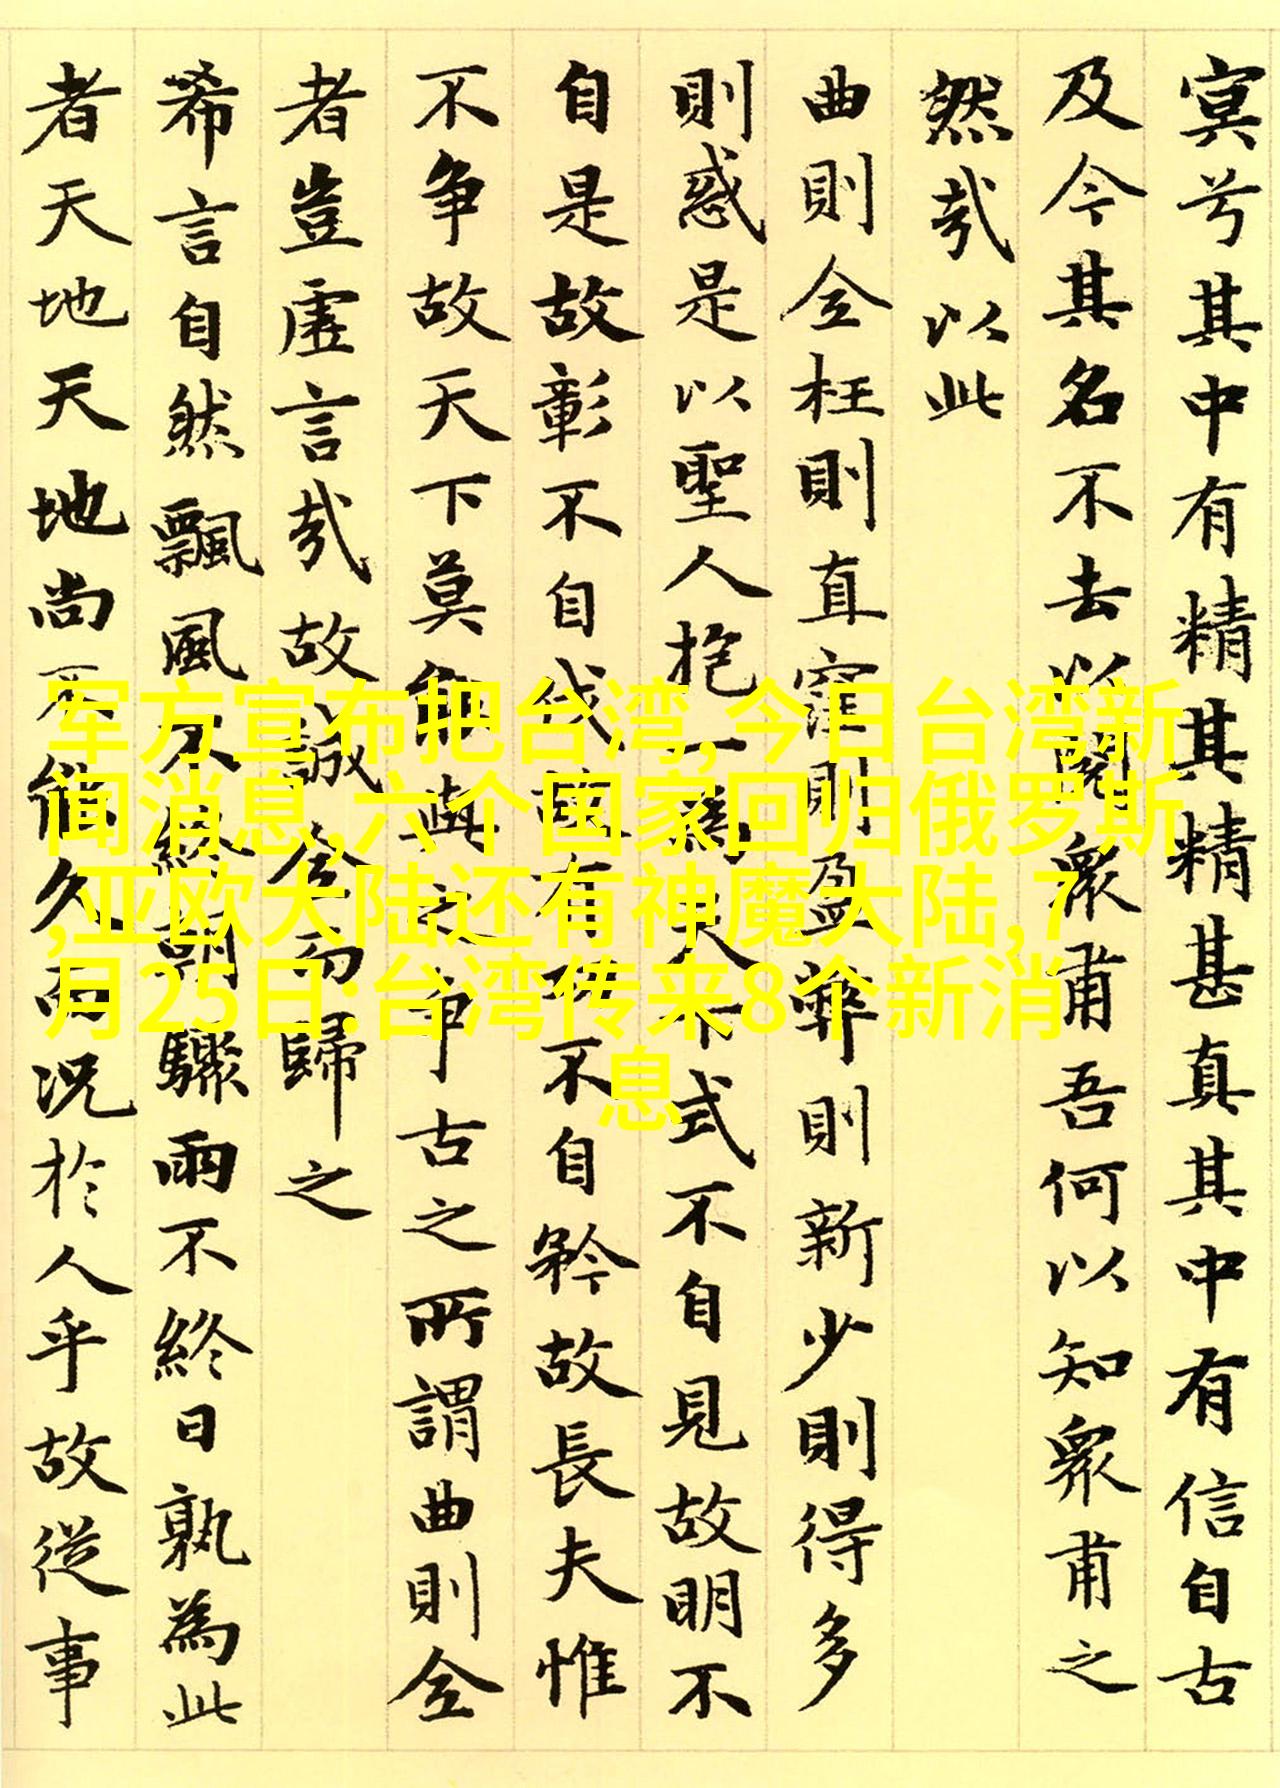 寞兮其中有精其精甚真其中有信自古
及今其名不去以閱衆甫吾何以知衆甫之
然哉以此
曲則全枉則直窪則盈弊則新少則得多
則惑是以聖人抱一為天下式不自見故明不
自是故彰不自伐故有功不自矜故長夫惟
不争故天下莫能與之争古之所謂曲則全
者豈虛言哉故誠全而歸之
希言自然飄風不終朝驟雨不終日孰為此
者天地天地尚不能久而况於人乎故從事
军方宣布把台湾,今日台湾新
闻消息,六个国家回归俄罗斯
,亚欧大陆还有神魔大陆,7
月25日:台湾传来8个新消
息